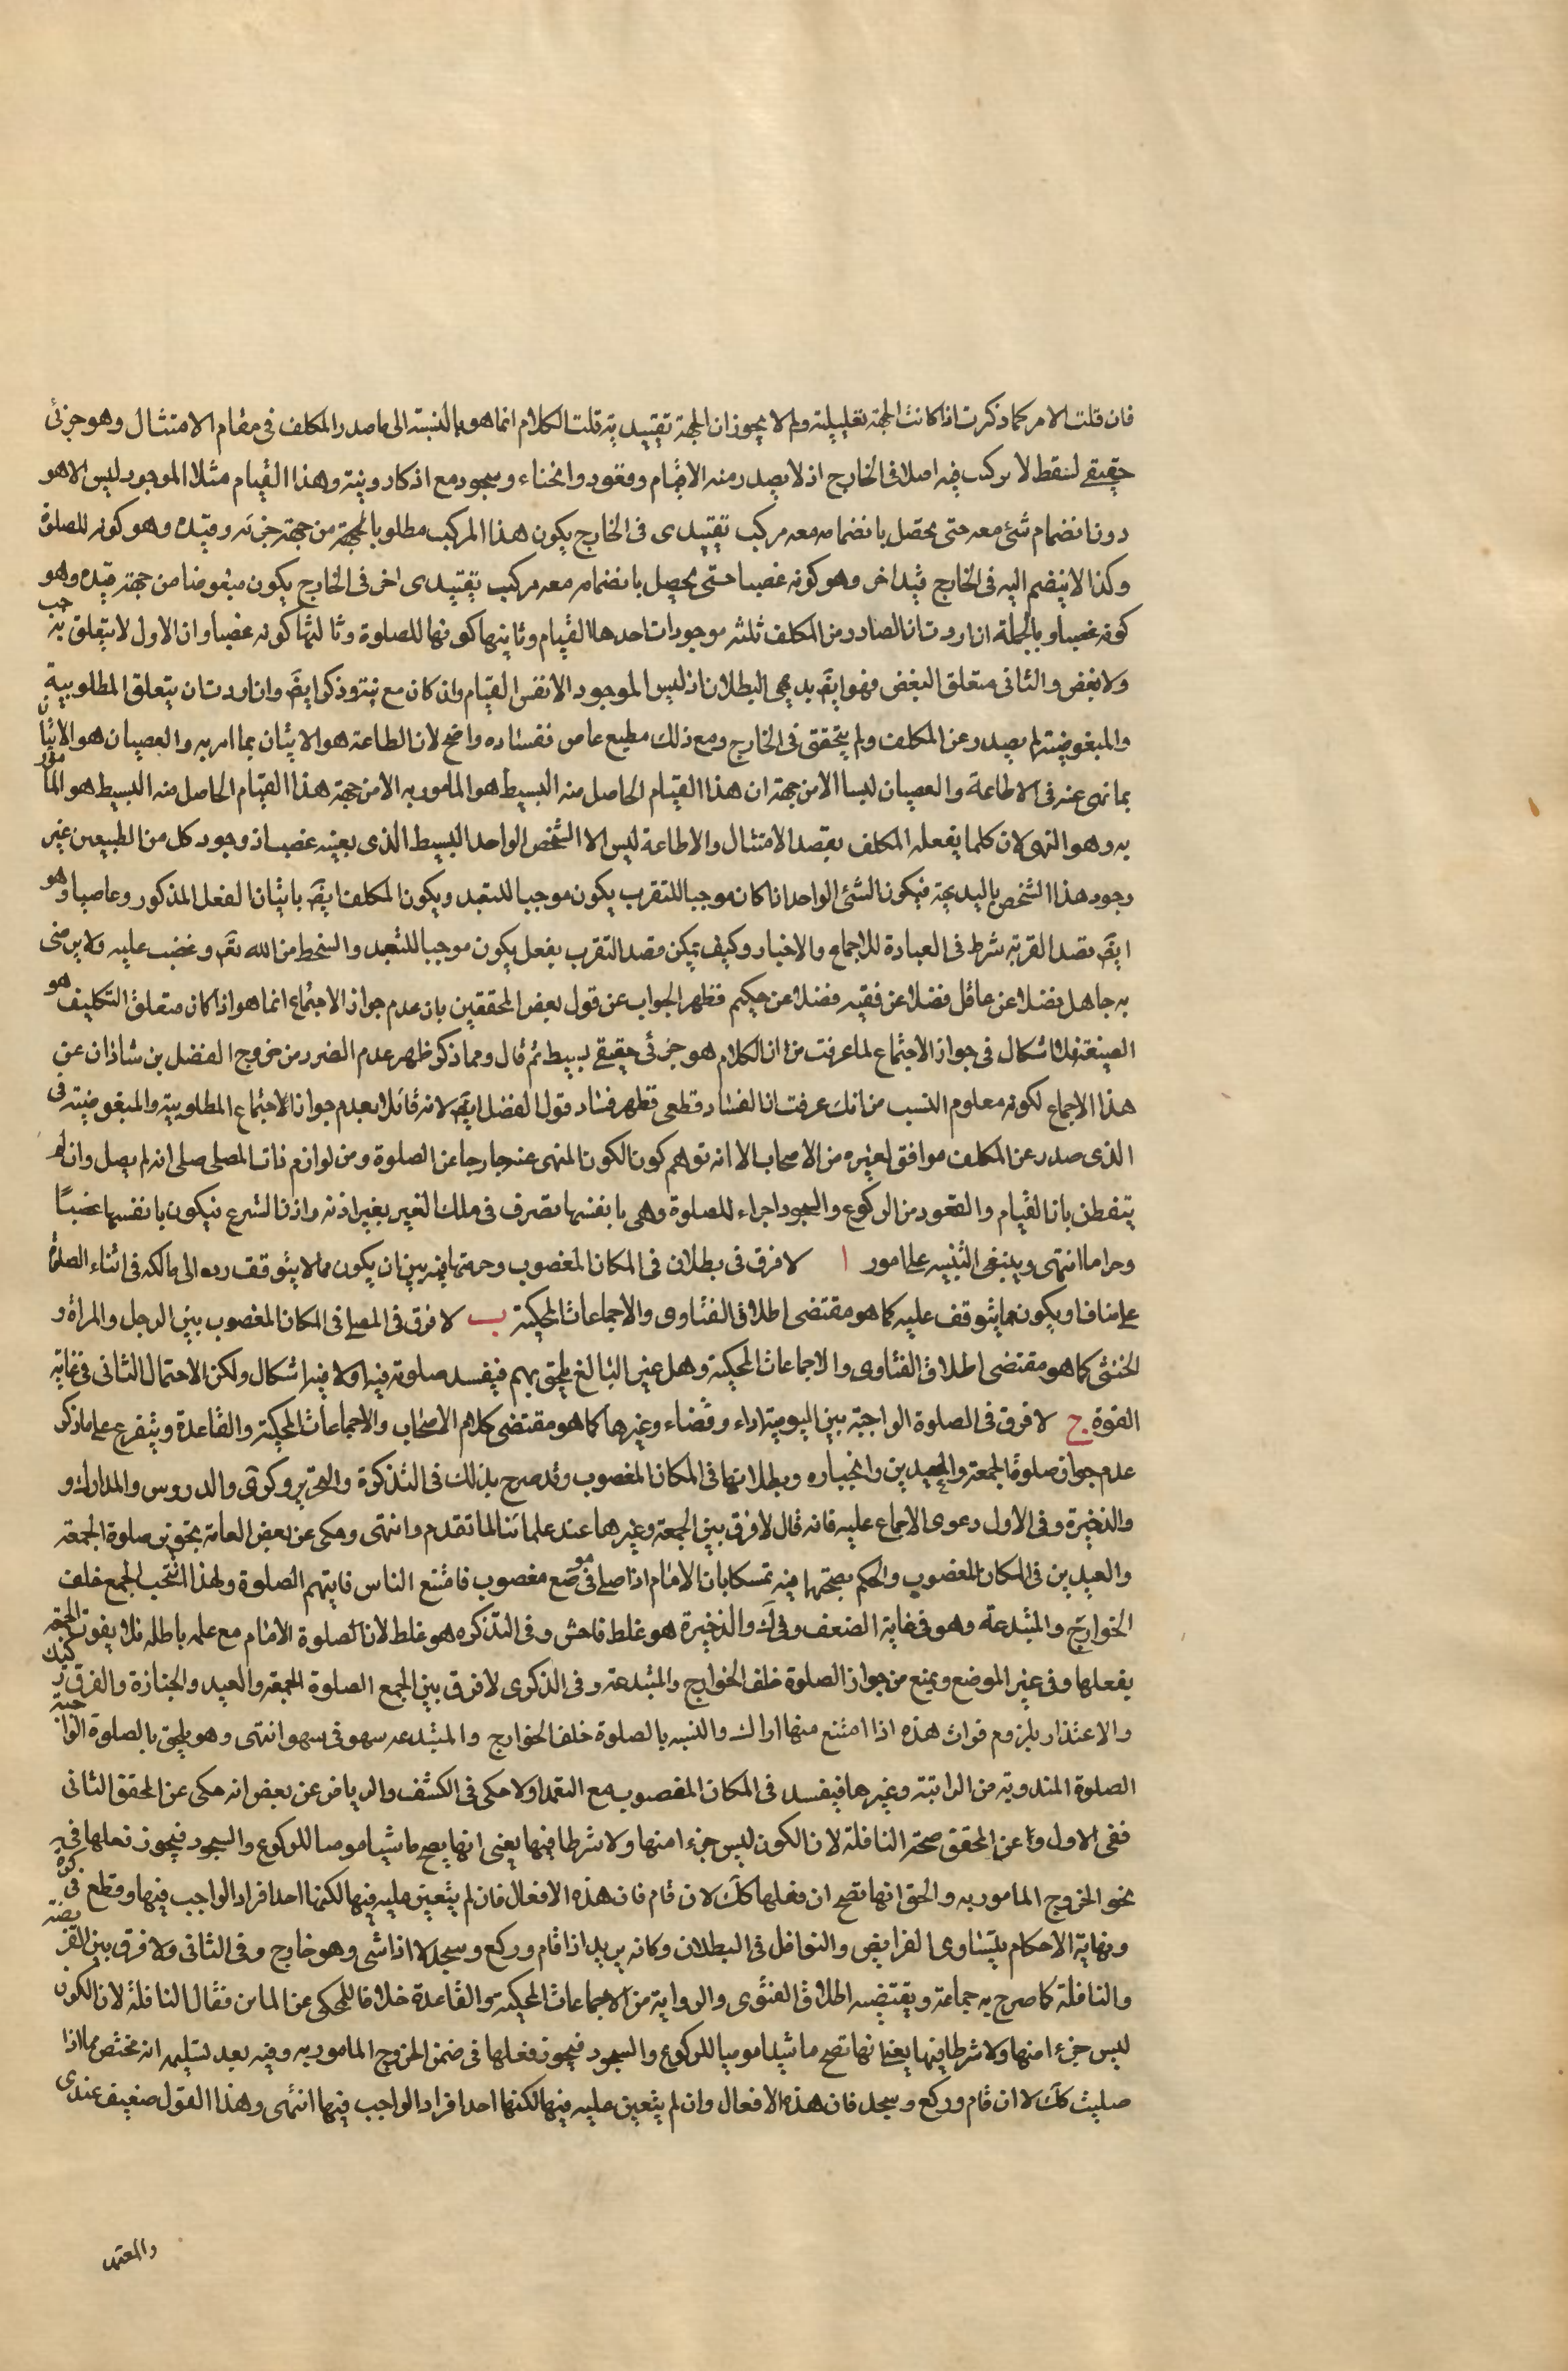 فان قلت الامر كما ذكرت اذا كانت الجهة تعليلية ولم لا يجوز ان الجهة تقييدية قلت الكلام انما هو بالنسبة الى ما صدر المكلف في مقام الامتثال وهو جزئى
حقيقي لنقط لا تركب فيه اصلا في الخارج اذ لا يصدر منه الا قيام وقعود وانحناء وسجود مع اذكار ونية وهذا القيام مثلا الموجود ليس الا هو
دون انضمام شئ معه حتى يحصل بانضمامه معه مركب تقييدى فى الخارج يكون هذا المركب مطلوبا لجهة من جهة جزئه وقيده وهو كونه للصلوة
وكذا لا ينضم اليه فى الخارج قيد اخر وهو كونه غصبا حتى يحصل بانضمامه معه مركب تقييدى اخر فى الخارج يكون مبغوضا من جهة قيده وهو
كونه غصبا وبالجملة ان اردت ان الصادر من المكلف ثلثه موجودات احدها القيام وثانيها كونها للصلوة وثالثها كونه غصبا وان الاول لا يتعلق به حب
ولا بغض والثانى متعلق البغض فهو ايضَ بديهى البطلان اذ ليس الموجود الا نفس القيام وان كان مع نية وذكر ايضَ وان اردت ان يتعلق المطلوبية
والمبغوضية لم يصدر عن المكلف ولم يتحقق فى الخارج ومع ذلك مطيع عاص ففساده واضح لان الطاعة هو الاتيان بما امر به والعصيان هو الاتيان
بما نهى عنه فى الاطاعة والعصيان ليسا الا من جهة ان هذا القيام الحاصل منه البسيط هو المامور به الا من جهة هذا القيام الحاصل منه البسيط هو المامور
به وهو النهى لان كلما يفعله المكلف بقصد الامتثال والاطاعة ليس الا الشخص الواحد البسيط الذى بعينه غصب اذ وجود كل من الطبيعين غير
وجود هذا الشخص بالبديهة فيكون الشئ الواحد اذا كان موجبا للتقرب يكون موجبا للتبعد ويكون المكلف ايضَ باتيان الفعل المذكور وعاصيا وهو
ايضَ بقصد القربة شرط فى العبادة للاجماع والاخبار وكيف يمكن قصد التقرب بفعل يكون موجبا للتبعد والسخط من الله تعَ وغضب عليه ولا يرضى
به جاهل فضلا عن عاقل فضلا عن فقيه فضلا عن حكيم فظهر الجواب عن قول بعض المحققين بان عدم جواز الاجتماع انما هو اذا كان متعلق التكليف هو
الصيغة فلا اشكال فى جواز الاجتماع لما عرفت من ان الكلام هو جزئى حقيقى بسيط ثم قال ومما ذكر ظهر عدم الضرر من خروج الفضل بن شاذان عن
هذا الاجماع لكونه معلوم النسب من انك عرفت ان الفساد قطعى فظهر فساد قول الفضل ايضَ لانه قائل بعدم جواز الاجتماع المطلوبية والمبغوضية فى
الذى صدر عن المكلف موافق لغيره من الاصحاب الا انه توهم كون الكون المنهى عنه خارجا عن الصلوة ومن لوازم ذات المصلى صلى انه لم يصل وان لم
يتفطن بان القيام والقعود من الركوع والسجود اجزاء للصلوة وهى بانفسها تصرف فى ملك الغير بغير اذنه واذن الشرع فيكون بانفسها غصبًا
وحراما انتهى وينبغى التنبيه على امور ا لا فرق فى بطلان فى المكان المغصوب وحرمتها فيه بين ان يكون مما لا يتوقف رده الى مالكه فى اثناء الصلوة
على مناف او يكون مما يتوقف عليه كما هو مقتضى اطلاق الفتاوى والاجماعات المحكية ب لا فرق فى المصلى فى المكان المغصوب بين الرجل والمراة و
الخنثى كما هو مقتضى اطلاق الفتاوى والاجماعات المحكية وهل غير البالغ يلحق بهم فيفسد صلوته فيه او لا فيه اشكال ولكن الاحتمال الثانى فى غاية
القوة ج لا فرق فى الصلوة الواجبة بين اليومية اداء وقضاء وغيرها كما هو مقتضى كلام الاصحاب والاجماعات المحكية والقاعدة ويتفرع على ما ذكر
عدم جواز صلوة الجمعة والعيدين وبطلانها فى المكان المغصوب وقد صرح بذلك فى التذكرة والتحرير وكرى والدروس والمدارك و
والذخيرة وفى الاول دعوى الاجماع عليه فانه قال لا فرق بين الجمعة وغيرها عند علمائنا لما تقدم وانتهى وحكى عن بعض العامة تجويز صلوة الجمعة
والعيدين فى المكان المغصوب والحكم بصحتها فيه تمسكا بان الامام اذا صلى فى موضع مغصوب فامتنع الناس فايتهم الصلوة ولهذا الجمع خلف
الخوارج والمبتدعة وهو فى غاية الضعف وفى كَ والذخيرة هو غلط فاحش وفى التذكره هو غلط لان الصلوة الامام مع علمه باطله فلا يفوت الجمعة
بفعلها وفى غير الموضع ويمنع من جواز الصلوة خلف الخوارج والمبتدعة وفى الذكرى لا فرق بين الجمع الصلوة الجمعة والعيد والجنازة والفرق
والاعتذار بلزوم فوات هذه اذا امتنع منها والتشبيه بالصلوة خلف الخوارج والمبتدعه سهو فى سهو انتهى وهو يلحق بالصلوة الواجبة
الصلوة المندوبة من الراتبة وغيرها فيفسد فى المكان المغصوب مع التعمد او لا حكى فى الكشف والرياض عن بعض انه حكى عن المحقق الثانى
ففى الاول وعن المحقق صحة النافلة لان الكون ليس جزء منها ولا شرطا فيها يعنى انها يصح ماشيا موميا للركوع والسجود فيجوز فعلها فى
نحو الخروج المامور به والحق انها تصح ان فعلها كلَ لا ان قام فان هذه الافعال فان لم يتعين عليه فيها لكنها احد افراد الواجب فيها وقطع فى كره
ونهاية الاحكام بتساوى الفرايض والنوافل فى البطلان وكانه يريد اذا قام وركع وسجد لا اذا مشى وهو خارج وفى الثانى ولا فرق بين الفريضة
والنافلة كما صرح به جماعة ويقتضيه اطلاق الفتوى والرواية من الاجماعات المحكية والقاعدة خلافا للمحكى عن الماتن فقال النافلة لان الكون
ليس جزء منها ولا شرطا فيها يعنى انها تصح ماشيا موميا للركوع والسجود فيجوز فعلها فى ضمن الخروج المامور به وفيه بعد تسليمه انه مختص بما اذا
صليت كلَ لا ان قام وركع وسجد فان هذه الافعال وان لم يتعين عليه فيها لكنها احد افراد الواجب فيها انتهى وهذا القول ضعيف عندى
والمعتمد